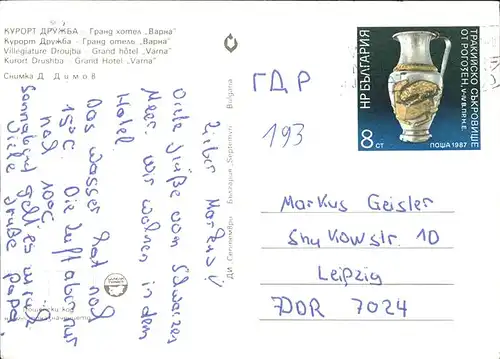 КУРОРТ ДРУЖБА · Гранд хотел „Варна"
Курорт Дружба · Гранд отель „Варна"
Villégiature Droujba · Grand hôtel „Varna"
Kurort Drushba · Grand Hotel „Varna"
Снимка Д. Димов
Lieber Markus!
Viele Grüße vom Schwarzen
Meer. Wir wohnen in dem
Hotel.
Das Wasser hat noch
15°C. Die Luft aber nur
noch 10°C
Sonnabend geht es zurück
Viele Grüße Papa
ДИ „Септември" България „Septemvri" Bulgaria
НР БЪЛГАРИЯ
ТРАКИЙСКО СЪКРОВИЩЕ
ОТ РОГОЗЕН, V-IV В. ПР. Н. Е.
8 СТ
ПОЩА 1987
ГДР
193
Markus Geisler
Shukowstr. 10
Leipzig
DDR 7024
Пощенски код